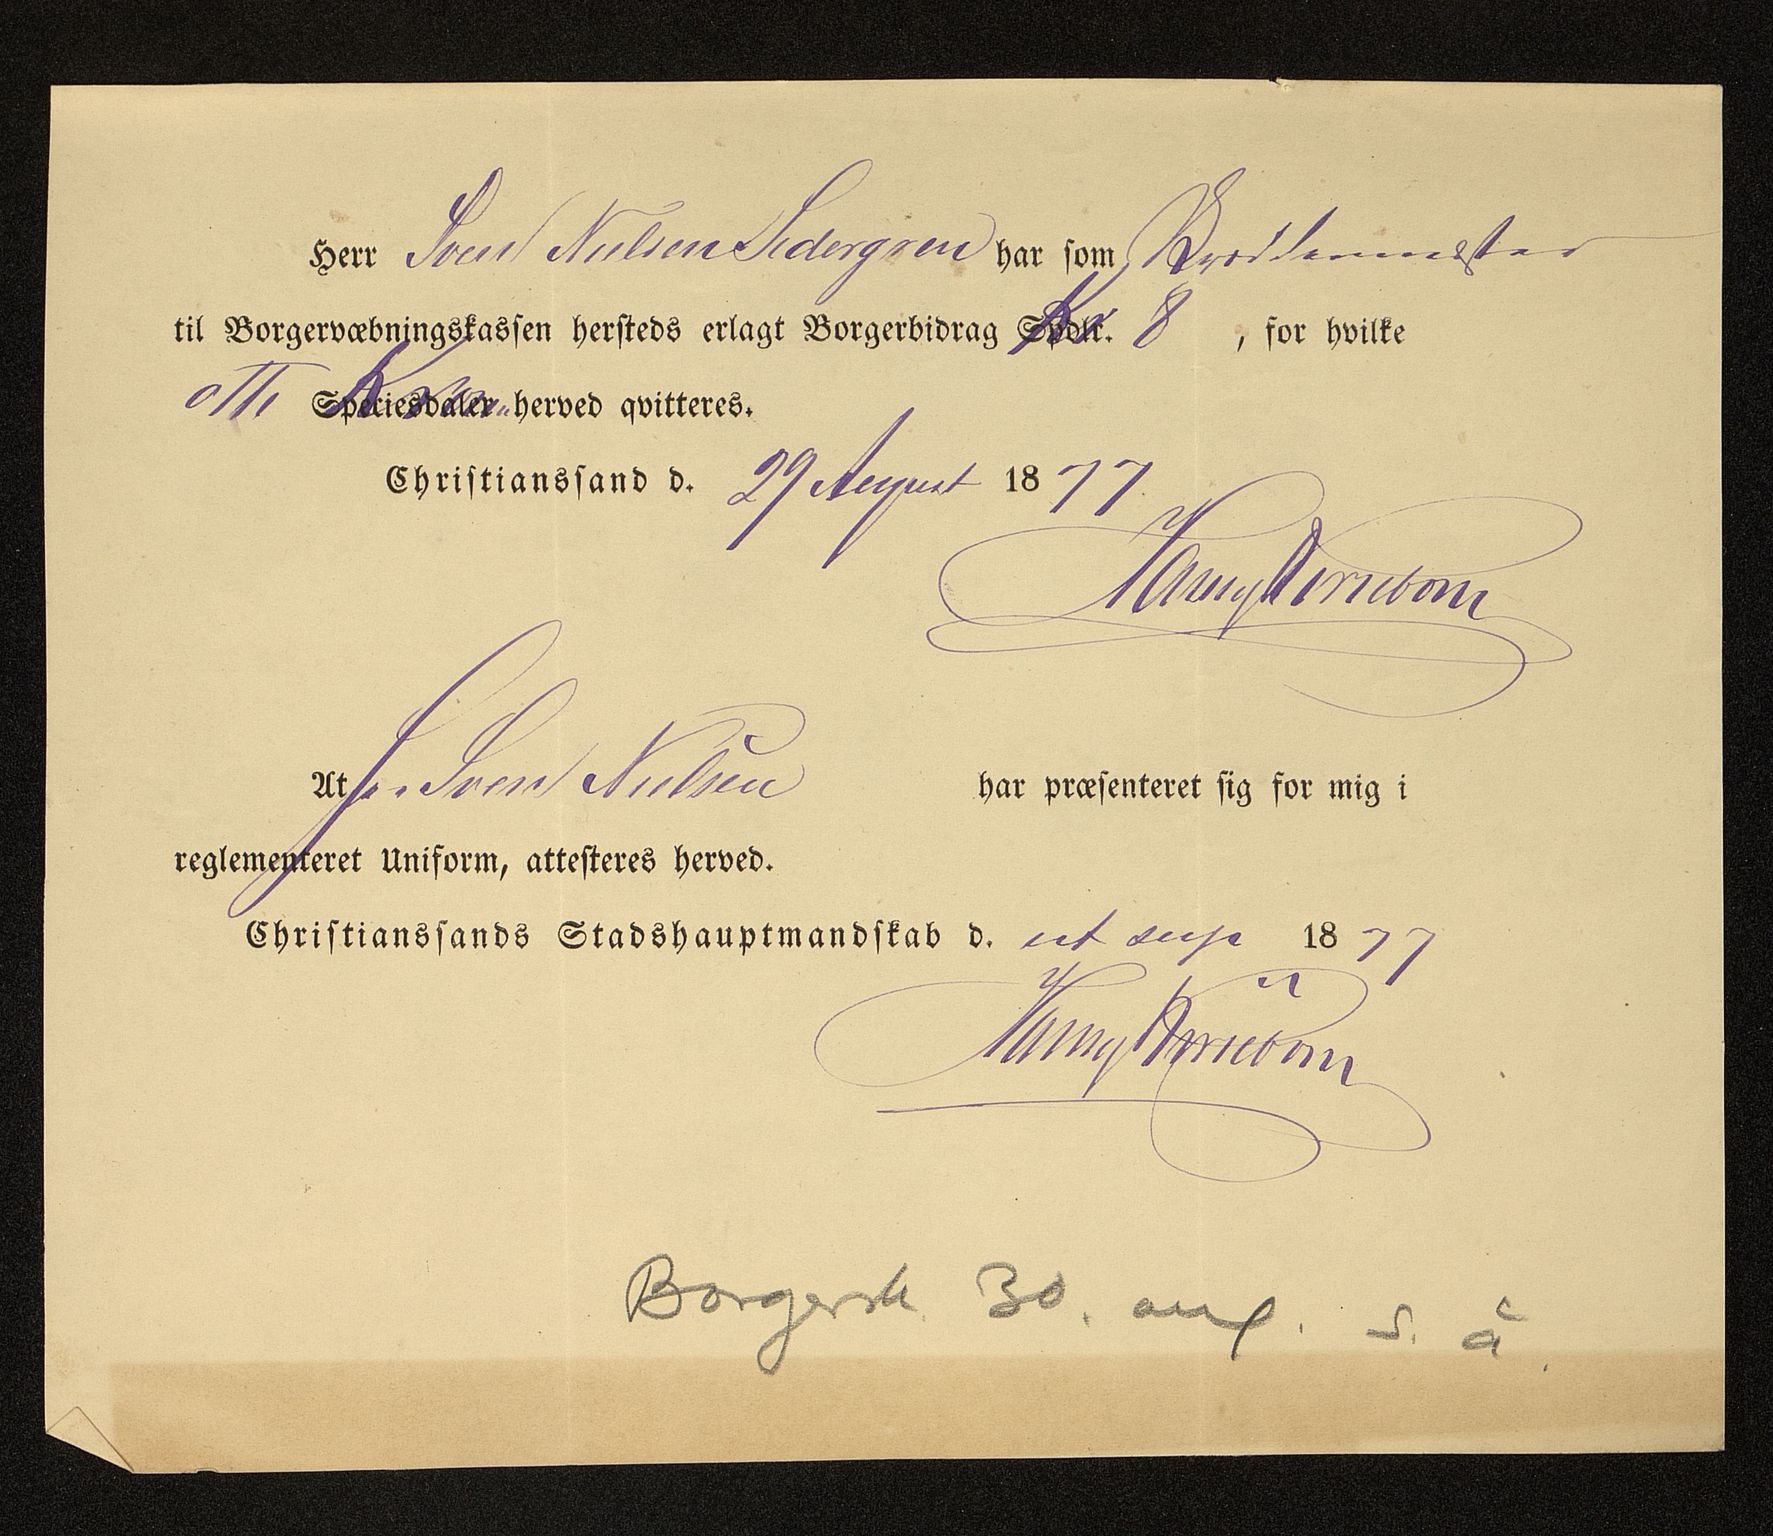 Herr Sven Nielsen Sedergren har som
til Borgervæbningskassen hersteds erlagt Borgerbidrag Spdlr. Kr 8 , for hvilke
otte Speciesdaler Kroner herved qvitteres.
Christianssand d. 29 August 1877
At Hr. Sven Nielsen har præsenteret sig for mig i
reglementeret Uniform, attesteres herved.
Christianssands Stadshauptmandskab d. ut sup 1877
Borgersk. 30. aug. s. å.